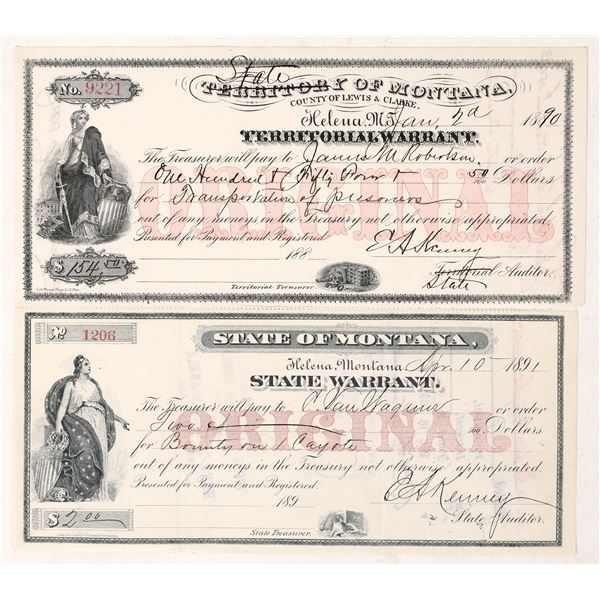 State
No. 9221
TERRITORY OF MONTANA,
COUNTY OF LEWIS & CLARKE.
Helena, M.T. Jan. 2d 1890
TERRITORIAL WARRANT.
The Treasurer will pay to James M Robertson or order
One Hundred & Fifty Four & 50/100 Dollars
for Transportation of prisoners
out of any moneys in the Treasury not otherwise appropriated.
ORIGINAL
Presented for Payment and Registered
188 E A Kenney
$154.50 Territorial Auditor.
State
Territorial Treasurer.
No 1206
STATE OF MONTANA,
Helena, Montana, Apr. 10 1891
STATE WARRANT.
The Treasurer will pay to C. Van Wagner or order
Two & 100 Dollars
for Bounty on Cayote
out of any moneys in the Treasury not otherwise appropriated.
ORIGINAL
Presented for Payment and Registered.
189 E A Kenney
$2.00 State Auditor.
State Treasurer.